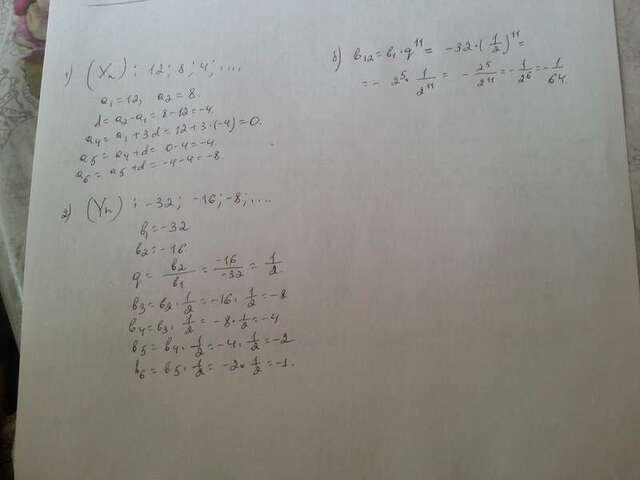 1) (Xn) : 12; 8; 4; ....
a₁ = 12, a₂ = 8.
d = a₂ - a₁ = 8 - 12 = -4.
a₄ = a₁ + 3d = 12 + 3·(-4) = 0.
a₅ = a₄ + d = 0 - 4 = -4
a₆ = a₅ + d = -4 - 4 = -8.
2) (Yn) : -32; -16; -8; ....
b₁ = -32
b₂ = -16
q = b₂/b₁ = -16/-32 = 1/2.
b₃ = b₂ · 1/2 = -16 · 1/2 = -8
b₄ = b₃ · 1/2 = -8 · 1/2 = -4
b₅ = b₄ · 1/2 = -4 · 1/2 = -2
b₆ = b₅ · 1/2 = -2 · 1/2 = -1.
б) b₁₂ = b₁ · q¹¹ = -32 · (1/2)¹¹ =
= - 2⁵ · 1/2¹¹ = - 2⁵/2¹¹ = - 1/2⁶ = - 1/64.